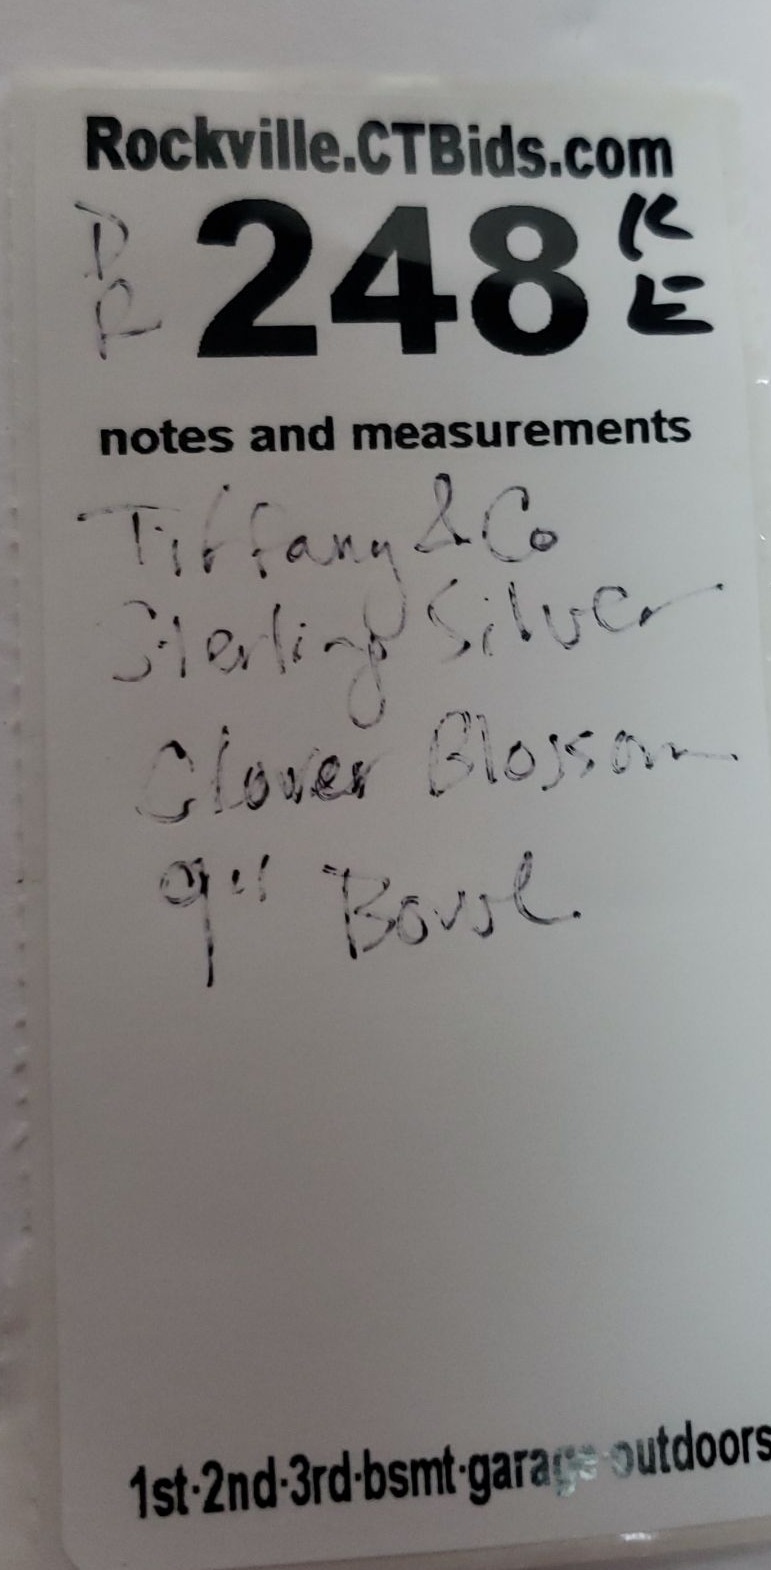 Rockville.CTBids.com
D R 248 K E
notes and measurements
Tiffany & Co
Sterling Silver
Clover Blossom
9" Bowl.
1st·2nd·3rd·bsmt·garage·outdoors